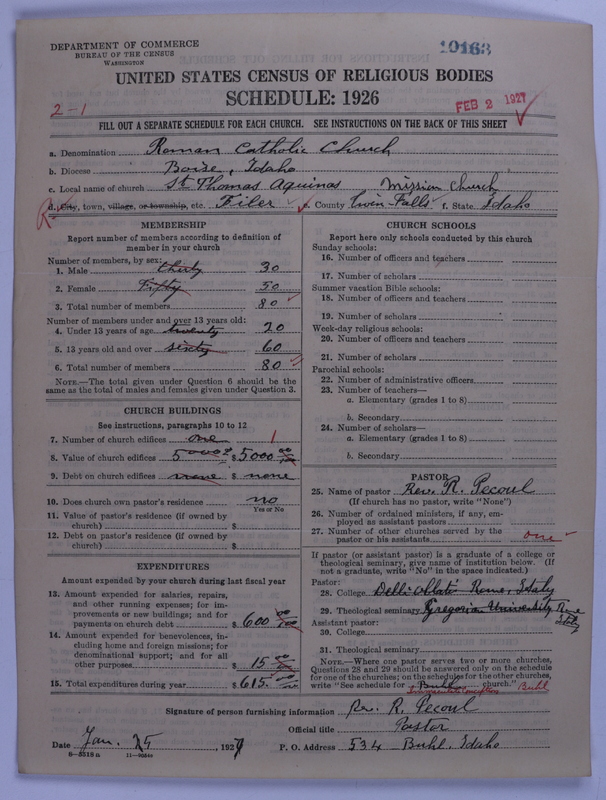 DEPARTMENT OF COMMERCE
BUREAU OF THE CENSUS
WASHINGTON
10163
UNITED STATES CENSUS OF RELIGIOUS BODIES
SCHEDULE: 1926
2-1
FEB 2 1927
FILL OUT A SEPARATE SCHEDULE FOR EACH CHURCH. SEE INSTRUCTIONS ON THE BACK OF THIS SHEET
a. Denomination Roman Catholic Church
b. Diocese Boise, Idaho
c. Local name of church St Thomas Aquinas Mission Church
d. City, town, village, or township, etc. Filer e. County Twin Falls f. State Idaho
MEMBERSHIP
Report number of members according to definition of
member in your church
Number of members, by sex:
1. Male thirty 30
2. Female Fifty 50
3. Total number of members 80
Number of members under and over 13 years old:
4. Under 13 years of age twenty 20
5. 13 years old and over sixty 60
6. Total number of members 80
NOTE.—The total given under Question 6 should be the
same as the total of males and females given under Question 3.
CHURCH BUILDINGS
See instructions, paragraphs 10 to 12
7. Number of church edifices one 1
8. Value of church edifices 5000 $ 5000 00
9. Debt on church edifices none $ none
10. Does church own pastor's residence no
Yes or No
11. Value of pastor's residence (if owned by
church) $
12. Debt on pastor's residence (if owned by
church) $
EXPENDITURES
Amount expended by your church during last fiscal year
13. Amount expended for salaries, repairs,
and other running expenses; for im-
provements or new buildings; and for
payments on church debt $ 600 00
14. Amount expended for benevolences, in-
cluding home and foreign missions; for
denominational support; and for all
other purposes $ 15 00
15. Total expenditures during year $ 615.00
CHURCH SCHOOLS
Report here only schools conducted by this church
Sunday schools:
16. Number of officers and teachers
17. Number of scholars
Summer vacation Bible schools:
18. Number of officers and teachers
19. Number of scholars
Week-day religious schools:
20. Number of officers and teachers
21. Number of scholars
Parochial schools:
22. Number of administrative officers
23. Number of teachers—
a. Elementary (grades 1 to 8)
b. Secondary
24. Number of scholars—
a. Elementary (grades 1 to 8)
b. Secondary
PASTOR
25. Name of pastor Rev. R. Pecoul
(If church has no pastor, write "None")
26. Number of ordained ministers, if any, em-
ployed as assistant pastors
27. Number of other churches served by the
pastor or his assistants one
If pastor (or assistant pastor) is a graduate of a college or
theological seminary, give name of institution below. (If
not a graduate, write "No" in the space indicated.)
Pastor:
28. College Rome, Italy
29. Theological seminary Gregorian University Rome Italy
Assistant pastor:
30. College
31. Theological seminary
NOTE.—Where one pastor serves two or more churches,
Questions 28 and 29 should be answered only on the schedule
for one of the churches; on the schedules for the other churches,
write "See schedule for Buhl church."
Immaculate Conception Buhl
Signature of person furnishing information Rev. R. Pecoul
Official title Pastor
Date Jan. 25, 1927 P. O. Address 534 Buhl, Idaho